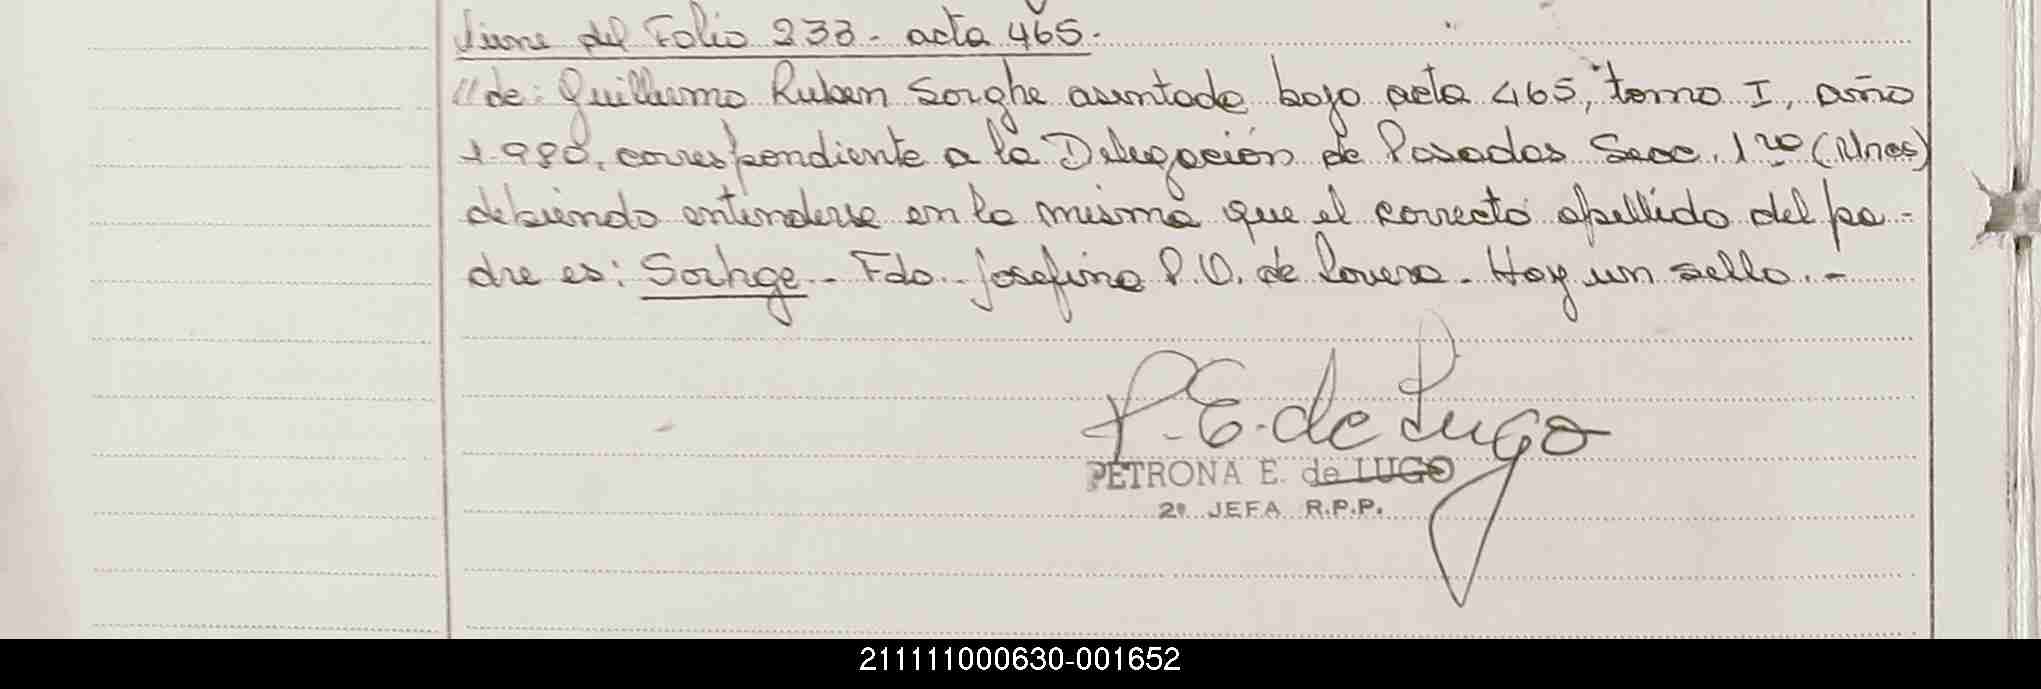 Viene del Folio 233 - acta 465.
//de: Guillermo Ruben Sorghe asentada bajo acta 465, tomo I, año
1.980, correspondiente a la Delegación de Posadas Secc. 1ra (Mnes)
debiendo entenderse en la misma que el correcto apellido del pa-
dre es: Sorhge - Fdo. Josefina P.O. de Lovera. Hay un sello.-
P. E. de Lugo
PETRONA E. de LUGO
2º JEFA R.P.P.
211111000630-001652